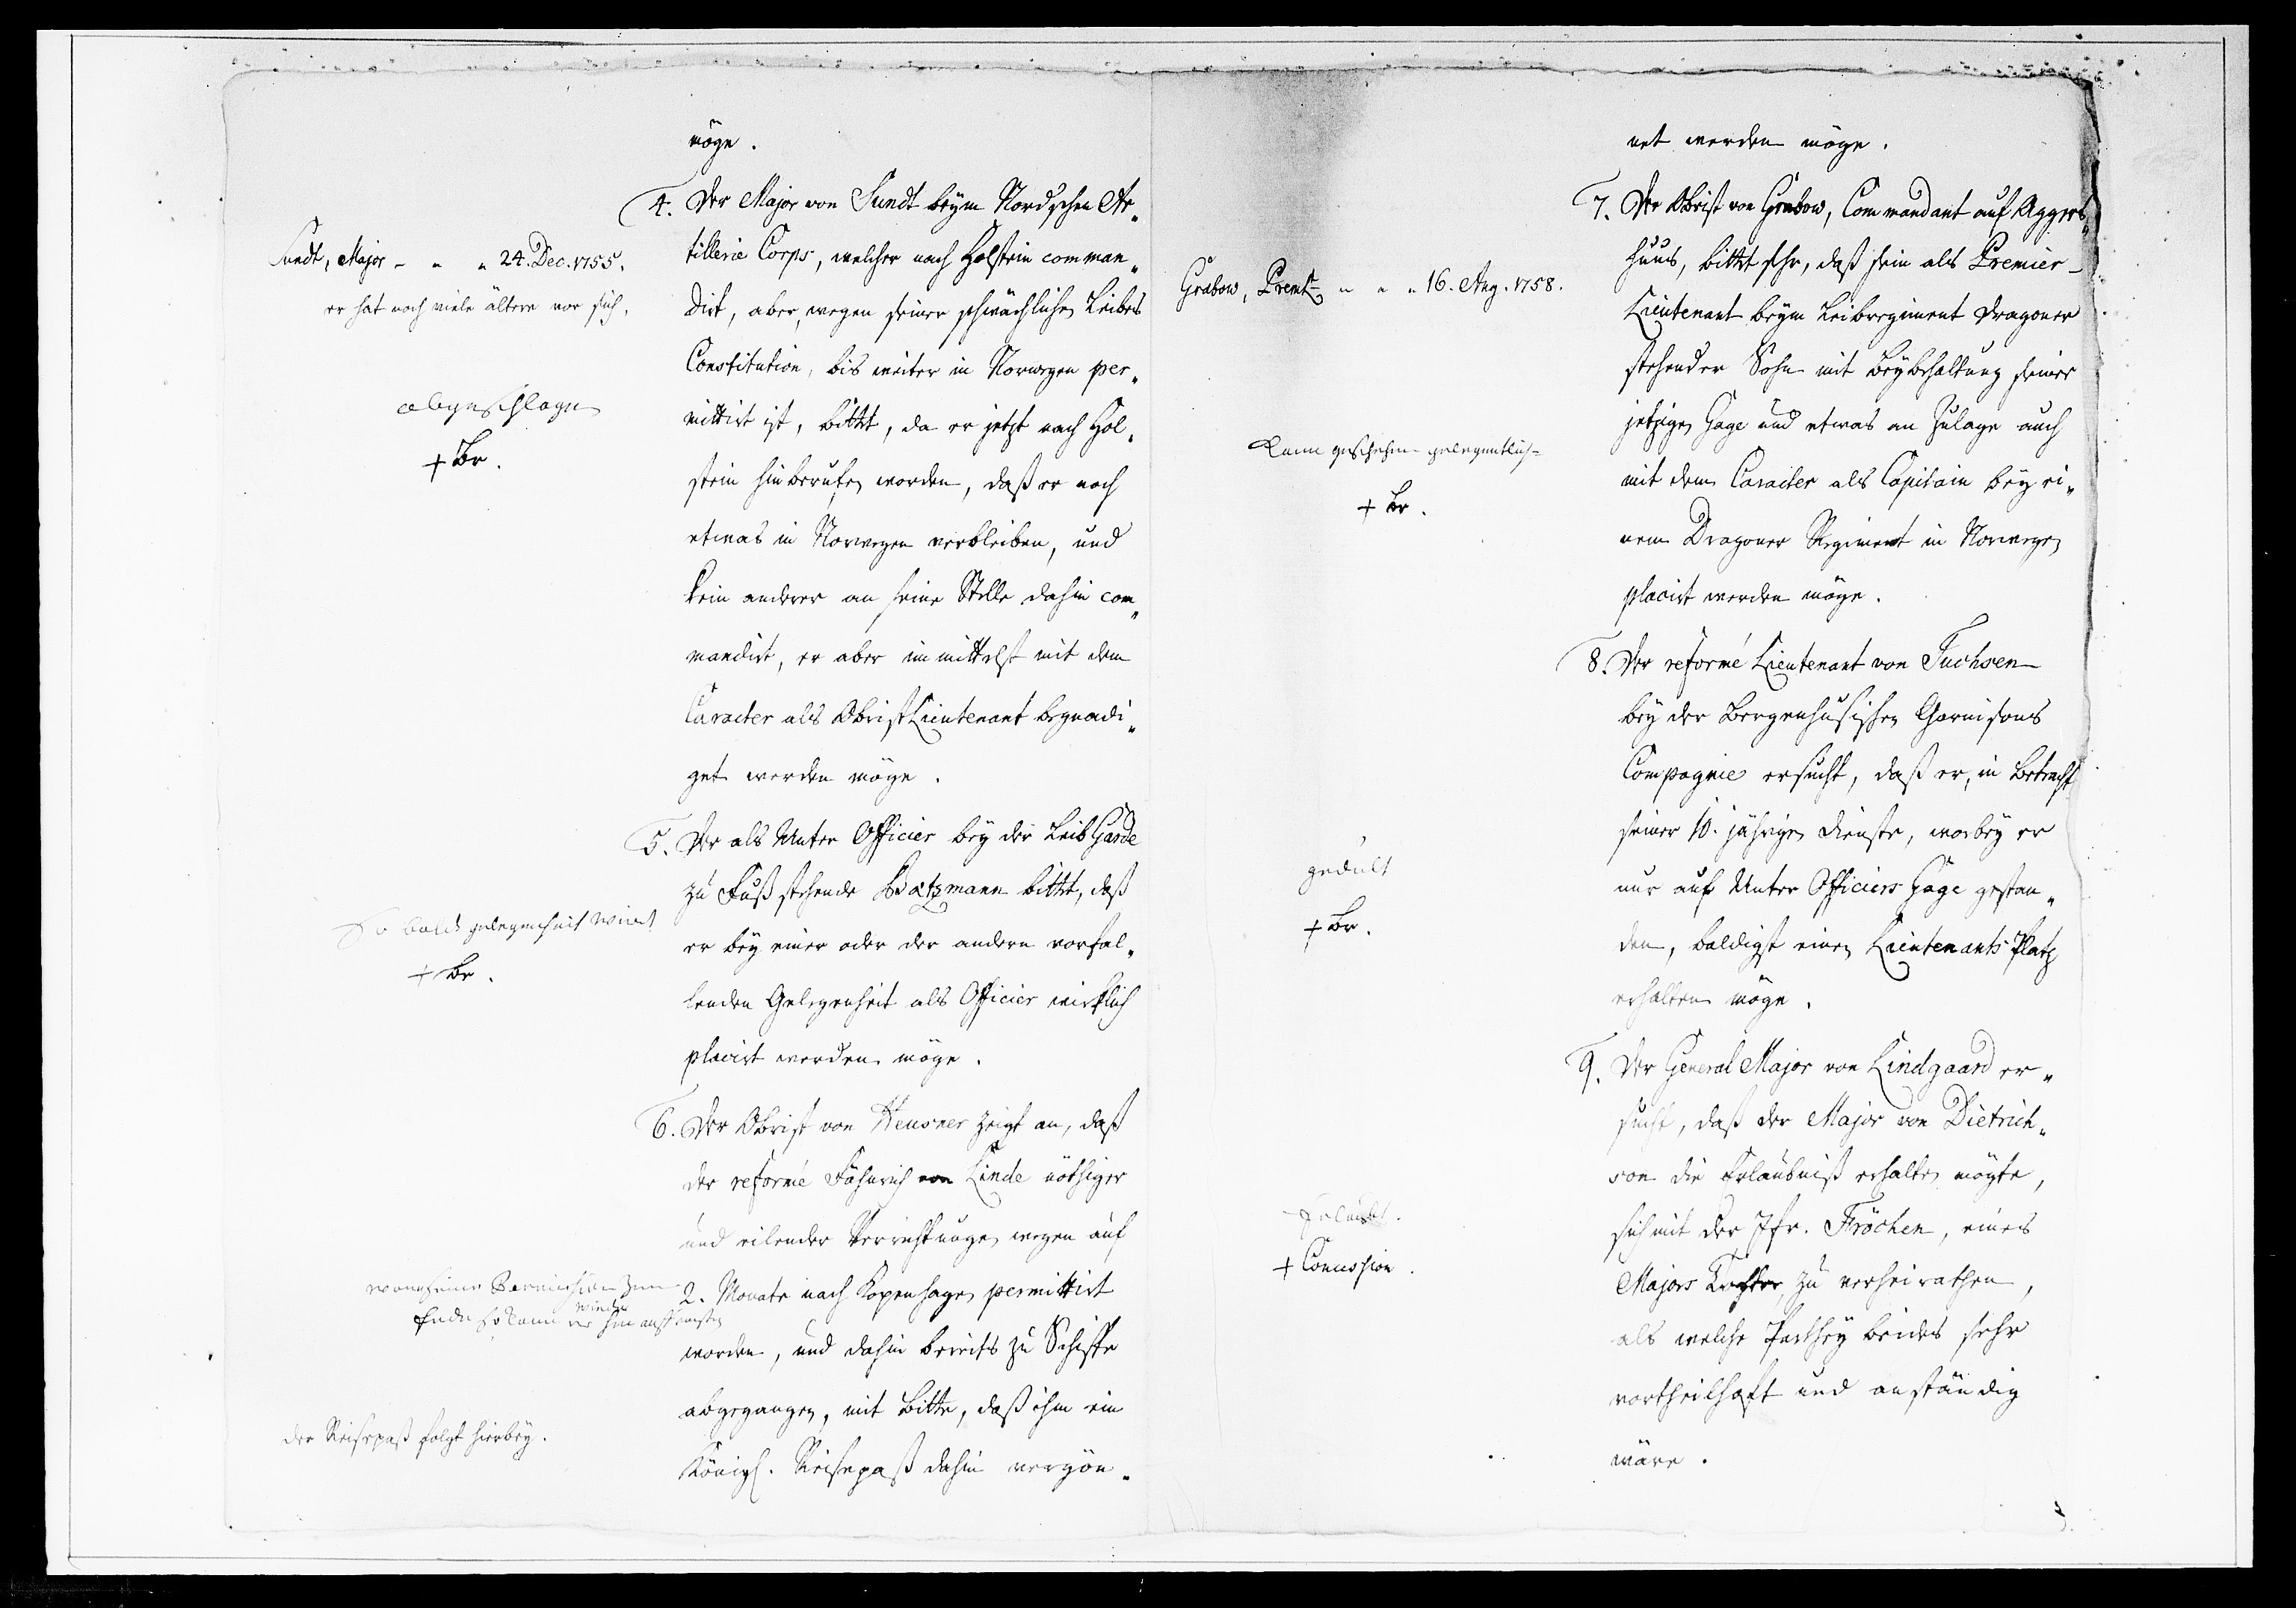 möge.
4. Der Major von Sundt beym Nordschen Ar„
tillerie Corps, welcher nach Holstein comman„
dirt, aber, wegen seiner schwächlichen Leibes
Constitution, bis weiter in Norwegen per„
mittirt ist, bittet, da er jetzt nach Hol„
stein hinberufen worden, daß er noch
etwas in Norwegen verbleiben, und
kein anderer an seine Stelle dahin com„
mandirt, er aber immittelst mit dem
Caracter als ObristLieutenant begnadi„
get werden möge.
Sundt, Major - " " 24. Dec. 1755.
er hat noch viele ältere vor sich.
abgeschlagen
+ Br.
5. Der als Unter Officier bey der Leib Garde
zu Fuß stehende Bratzmann bittet, daß
er bey einer oder der andern vorfal„
lenden Gelegenheit als Officier wirklich
placirt werden möge.
So bald gelegenheit wird
+ Br.
6. Der Obrist von Heusner zeigt an, daß
der reformé Fähnrich von Linde nöthiger
und eilender Verrichtungen wegen auf
2. Monate nach Kopenhagen permittirt
worden, und dahin bereits zu Schiffe
abgegangen, mit Bitte, daß ihm ein
Königl. Reisepaß dahin vergön„
wann seine Permission zum
Ende so kann er wieder hin
der Reisepaß folgt hierbey.
net werden möge.
7. Der Obrist von Grabow, Commandant auf Aggers„
huus, bittet sehr, daß sein als Premier-
Lieutenant beym Leibregiment Dragoner
stehender Sohn mit Beybehaltung seiner
jetzigen Gage und etwas an Zulage auch
mit dem Caracter als Capitain bey ei„
nem Dragoner Regiment in Norwegen
placirt werden möge.
Grabow, Premlt " " " 16. Aug. 1758.
Kann geschehen gelegentlich
+ Br.
8. Der reformé Lieutenant von Fuchsen
bey der Bergenhusischen Garnisons
Compagnie ersucht, daß er, in Betracht
seiner 10. jährigen Dienste, worbey er
nur auf Unter Officiers Gage gestan„
den, baldigst einen Lieutenants Platz
erhalten möge.
gedult
+ Br.
9. Der General Major von Lindgaard er„
sucht, daß der Major von Dietrich„
son die Erlaubniß erhalten mögte,
sich mit der Jfr. Fröchen, eines
Majors Tochter, zu verheirathen,
als welche Parthey beides sehr
vortheilhaft und anständig
wäre.
Erlaubt.
+ Concession.